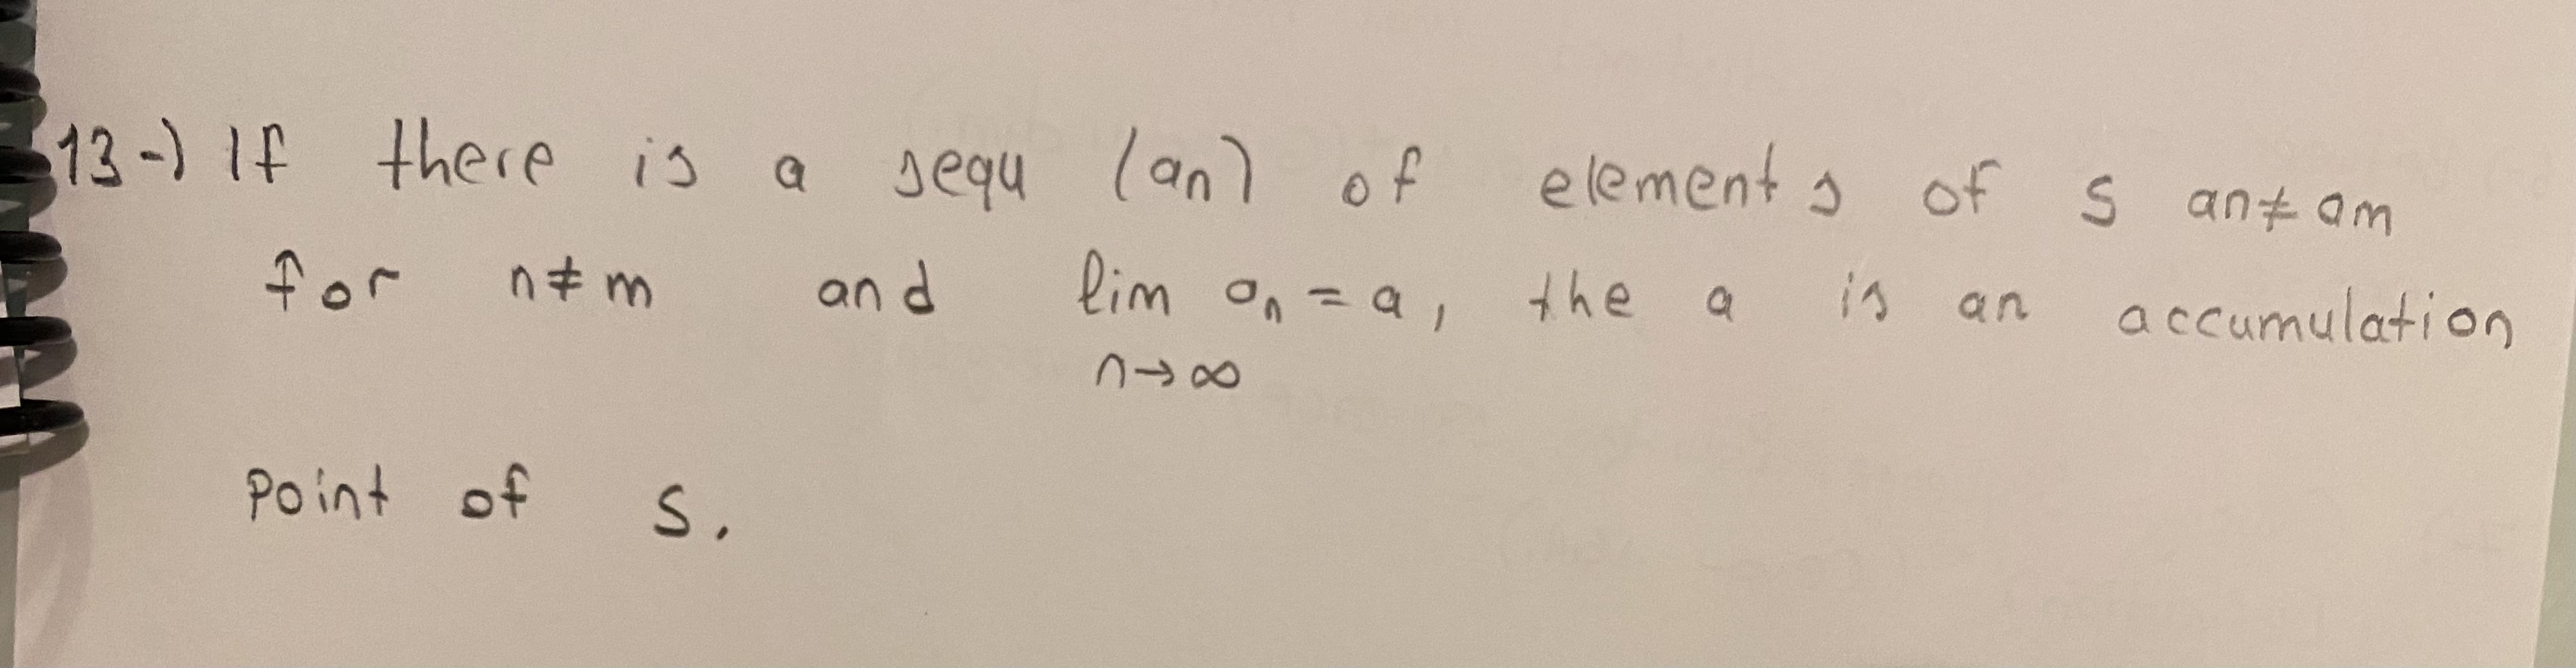 13-) If there is a sequ (an) of elements of S an≠am
for n≠m and lim an = a, the a is an accumulation
n→∞
Point of S.